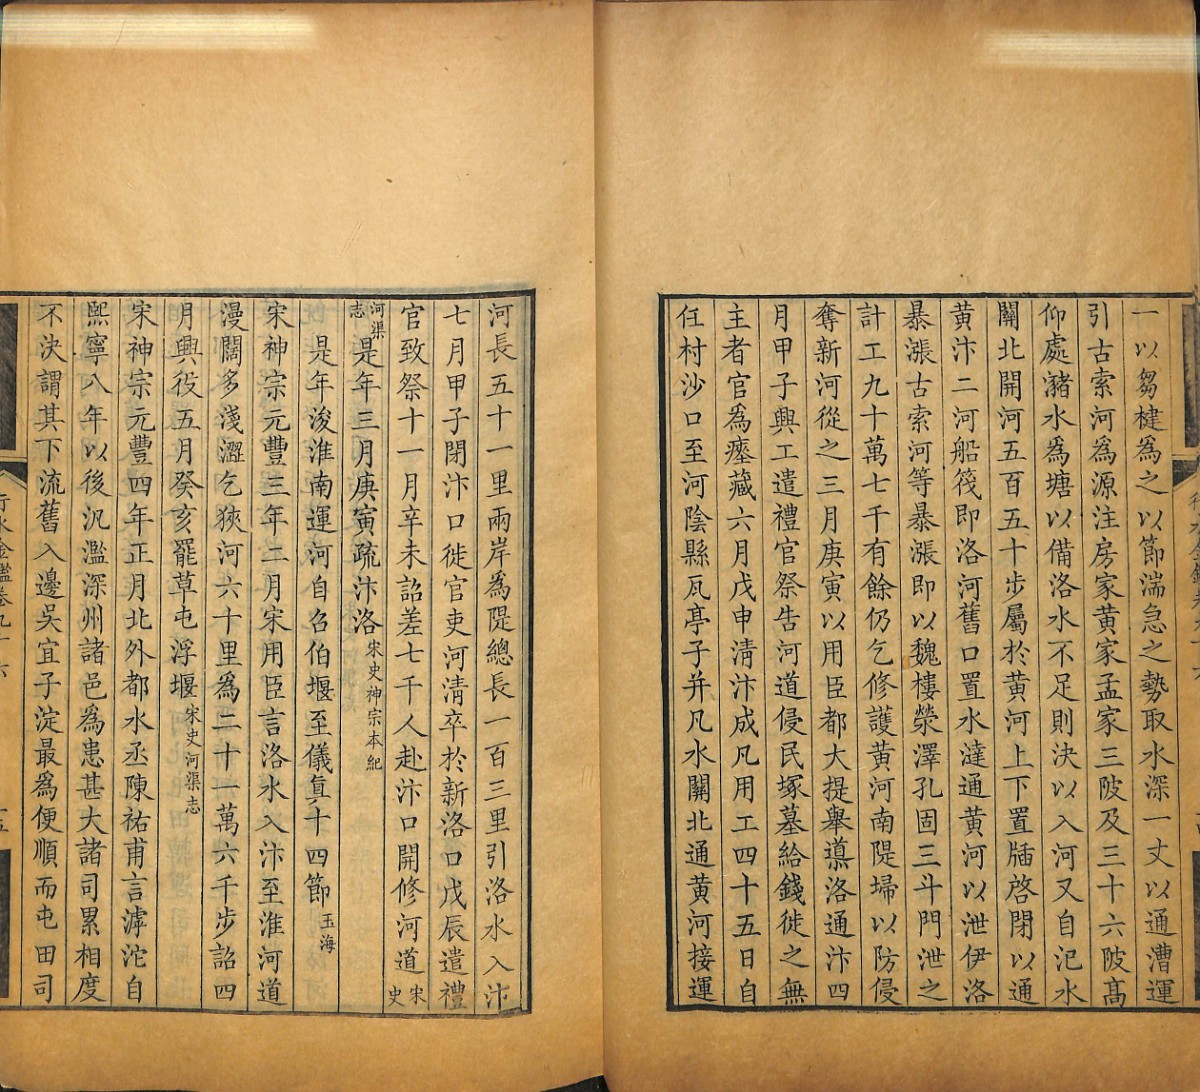 一以芻楗爲之以節湍急之勢取水深一丈以通漕運
引古索河爲源注房家黃家孟家三陂及三十六陂髙
仰處瀦水爲塘以備洛水不足則決以入河又自汜水
關北開河五百五十步屬於黃河上下置牐啓閉以通
黃汴二河船筏即洛河舊口置水澾通黃河以泄伊洛
暴漲古索河等暴漲即以魏樓滎澤孔固三斗門泄之
計工九十萬七千有餘仍乞修護黃河南隄埽以防侵
奪新河從之三月庚寅以用臣都大提舉導洛通汴四
月甲子興工遣禮官祭告河道侵民塚墓給錢徙之無
主者官為瘞藏六月戊申淸汴成凡用工四十五日自
任村沙口至河陰縣瓦亭子并凡水關北通黃河接運
河長五十一里兩岸為隄總長一百三里引洛水入汴
七月甲子閉汴口徙官吏河清卒於新洛口戊辰遣禮
官致祭十一月辛未詔差七千人赴汴口開修河道宋史
河渠志是年三月庚寅疏汴洛宋史神宗本紀
是年浚淮南運河自召伯堰至儀眞十四節玉海
宋神宗元豐三年二月宋用臣言洛水入汴至淮河道
漫闊多淺澀乞狹河六十里為二十一萬六千步詔四
月興役五月癸亥罷草屯浮堰宋史河渠志
宋神宗元豐四年正月北外都水丞陳祐甫言滹沱自
熙寧八年以後汎濫深州諸邑爲患甚大諸司累相度
不決謂其下流舊入邊吳宜子淀最爲便順而屯田司
行水金鑑卷九十六
十五